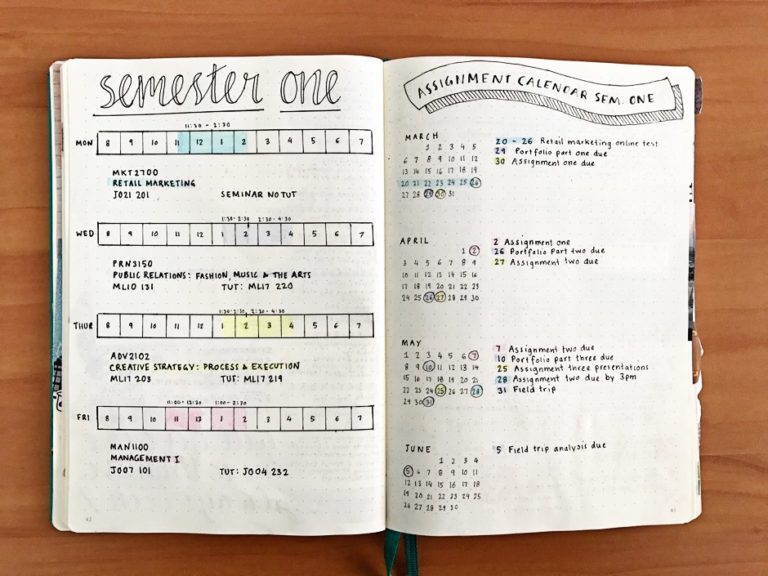 semester one
11:30 - 2:30
MON 8 9 10 11 12 1 2 3 4 5 6 7
MKT2700
RETAIL MARKETING
J021 201 SEMINAR NO TUT
1:30-2:30 2:30-4:30
WED 8 9 10 11 12 1 2 3 4 5 6 7
PRN3150
PUBLIC RELATIONS: FASHION, MUSIC & THE ARTS
ML10 131 TUT: ML17 220
1:30-2:30 2:30-4:30
THUR 8 9 10 11 12 1 2 3 4 5 6 7
ADV2102
CREATIVE STRATEGY: PROCESS & EXECUTION
ML17 203 TUT: ML17 219
FRI 8 9 10 11 12 1 2 3 4 5 6 7
MAN1100
MANAGEMENT I
J007 101 TUT: J004 232
ASSIGNMENT CALENDAR SEM. ONE
MARCH
1 2 3 4 5
6 7 8 9 10 11 12
13 14 15 16 17 18 19
20 21 22 23 24 25 26
27 28 29 30 31
20 - 26 Retail marketing online test
29 Portfolio part one due
30 Assignment one due
APRIL
1 2
3 4 5 6 7 8 9
10 11 12 13 14 15 16
17 18 19 20 21 22 23
24 25 26 27 28 29 30
2 Assignment one
26 Portfolio part two due
27 Assignment two due
MAY
1 2 3 4 5 6 7
8 9 10 11 12 13 14
15 16 17 18 19 20 21
22 23 24 25 26 27 28
29 30 31
7 Assignment two due
10 Portfolio part three due
25 Assignment three presentations
28 Assignment two due by 3pm
31 Field trip
JUNE
1 2 3 4
5 6 7 8 9 10 11
12 13 14 15 16 17 18
19 20 21 22 23 24 25
26 27 28 29 30
5 Field trip analysis due